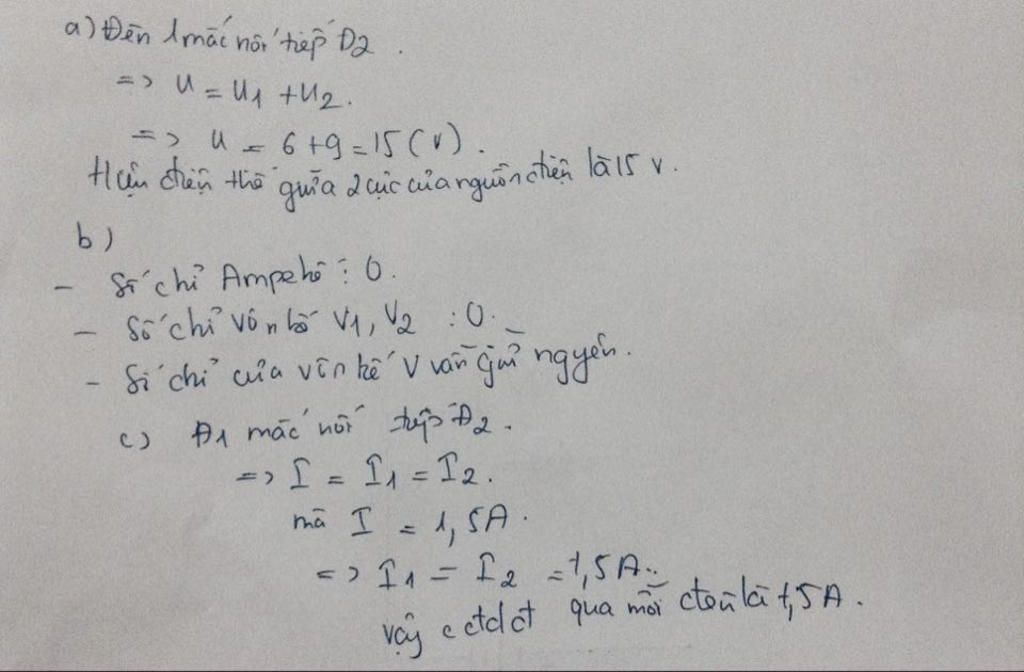 a) Đèn 1 mắc nối tiếp Đ2.
=> U = U1 + U2.
=> U = 6 + 9 = 15 (V).
Hiệu điện thế giữa 2 cực của nguồn điện là 15 V.
b)
- Số chỉ Ampe kế : 0.
- Số chỉ vôn kế V1, V2 : 0.
- Số chỉ của vôn kế V vẫn giữ nguyên.
c) Đ1 mắc nối tiếp Đ2.
=> I = I1 = I2.
mà I = 1,5A.
=> I1 = I2 = 1,5A.
vậy cđdđ qua mỗi đèn là 1,5A.